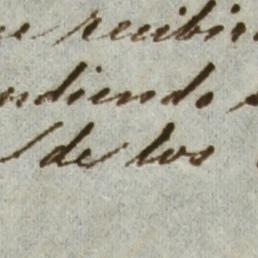 recibir
ndiendo
de los